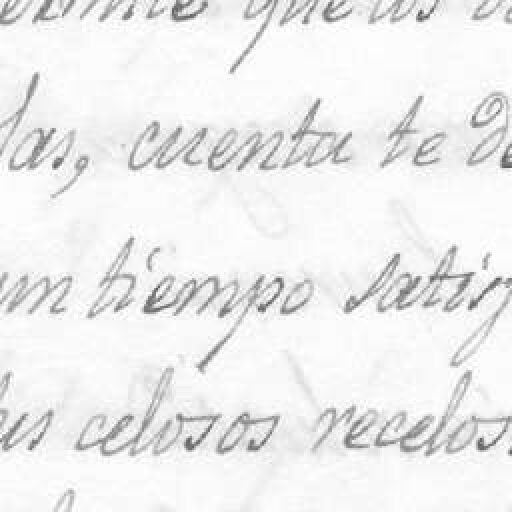 que los
las, cuenta te de
un tiempo satisf
tus celosos recelos